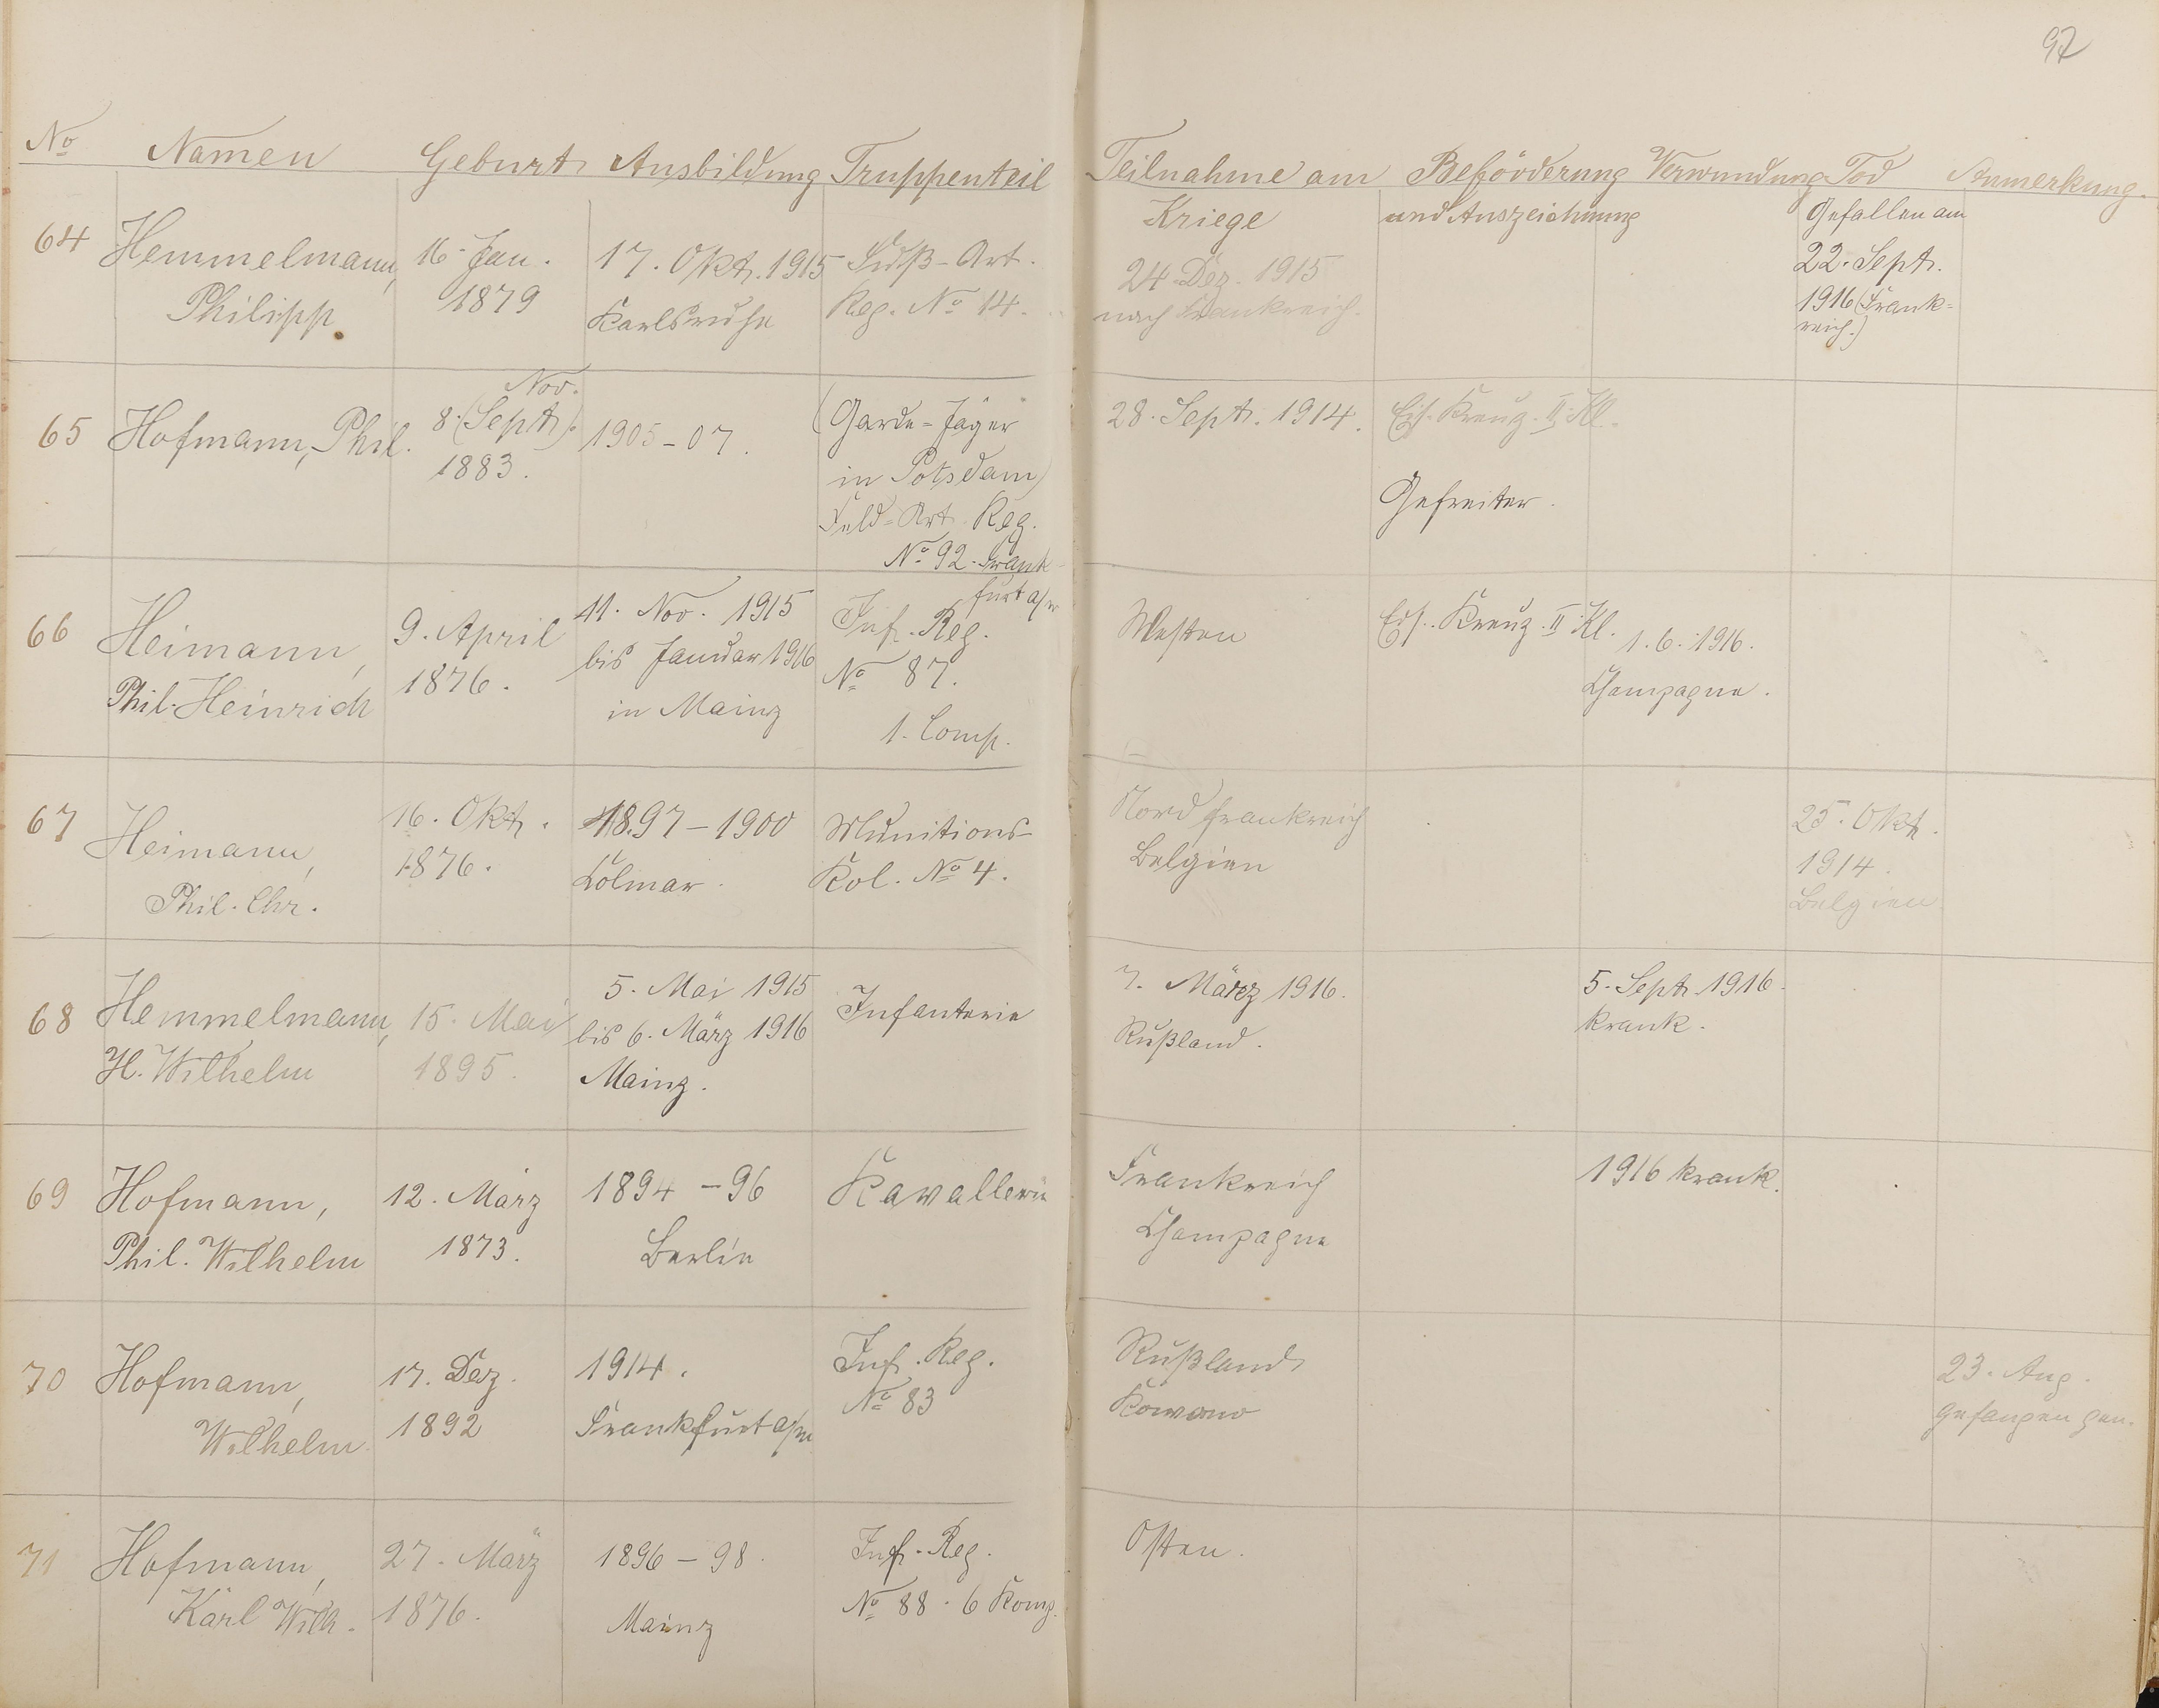 97
No Namen Geburt Ausbildung Truppenteil Teilnahme am Kriege Beförderung und Auszeichnung Verwundung Tod Anmerkung.
64 Hemmelmann, 16. Jan. 17. Okt. 1915 Fuß-Art.
Philipp 1879 Karlsruhe Reg. No 14.
24. Dez. 1915
nach Frankreich.
Gefallen am
22. Sept.
1916 (Frank=
reich.)
65 Hofmann, Phil.
Nov.
8. (Sept.)
1883.
1905-07.
(Garde=Jäger
in Potsdam)
Feld=Art. Reg.
No 92. Frank-
furt a/m
28. Sept. 1914.
Eis. Kreuz. II. Kl.
Gefreiter.
66 Heimann,
Phil. Heinrich
9. April
1876.
11. Nov. 1915
bis Januar 1916
in Mainz
Inf. Reg.
No 87.
1. Comp.
Westen
Eis. Kreuz. II Kl.
1. 6. 1916.
Champagne.
67 Heimann,
Phil. Chr.
16. Okt.
1876.
1897-1900
Colmar.
Munitions-
Kol. No 4.
Nordfrankreich
Belgien
25. Okt.
1914.
Belgien.
68 Hemmelmann,
H. Wilhelm
15. Mai
1895.
5. Mai 1915
bis 6. März 1916
Mainz.
Infanterie
7. März 1916.
Rußland.
5. Sept. 1916.
krank.
69 Hofmann,
Phil. Wilhelm
12. März
1873.
1894-96
Berlin
Kavallerie
Frankreich
Champagne
1916 krank.
70 Hofmann,
Wilhelm.
17. Dez.
1892
1914.
Frankfurt a/m.
Inf. Reg.
No 83
Rußland
Kowno
23. Aug.
gefangen gen.
71 Hofmann,
Karl Wilh.
27. März
1876.
1896-98.
Mainz
Inf. Reg.
No 88. 6 Komp.
Osten.